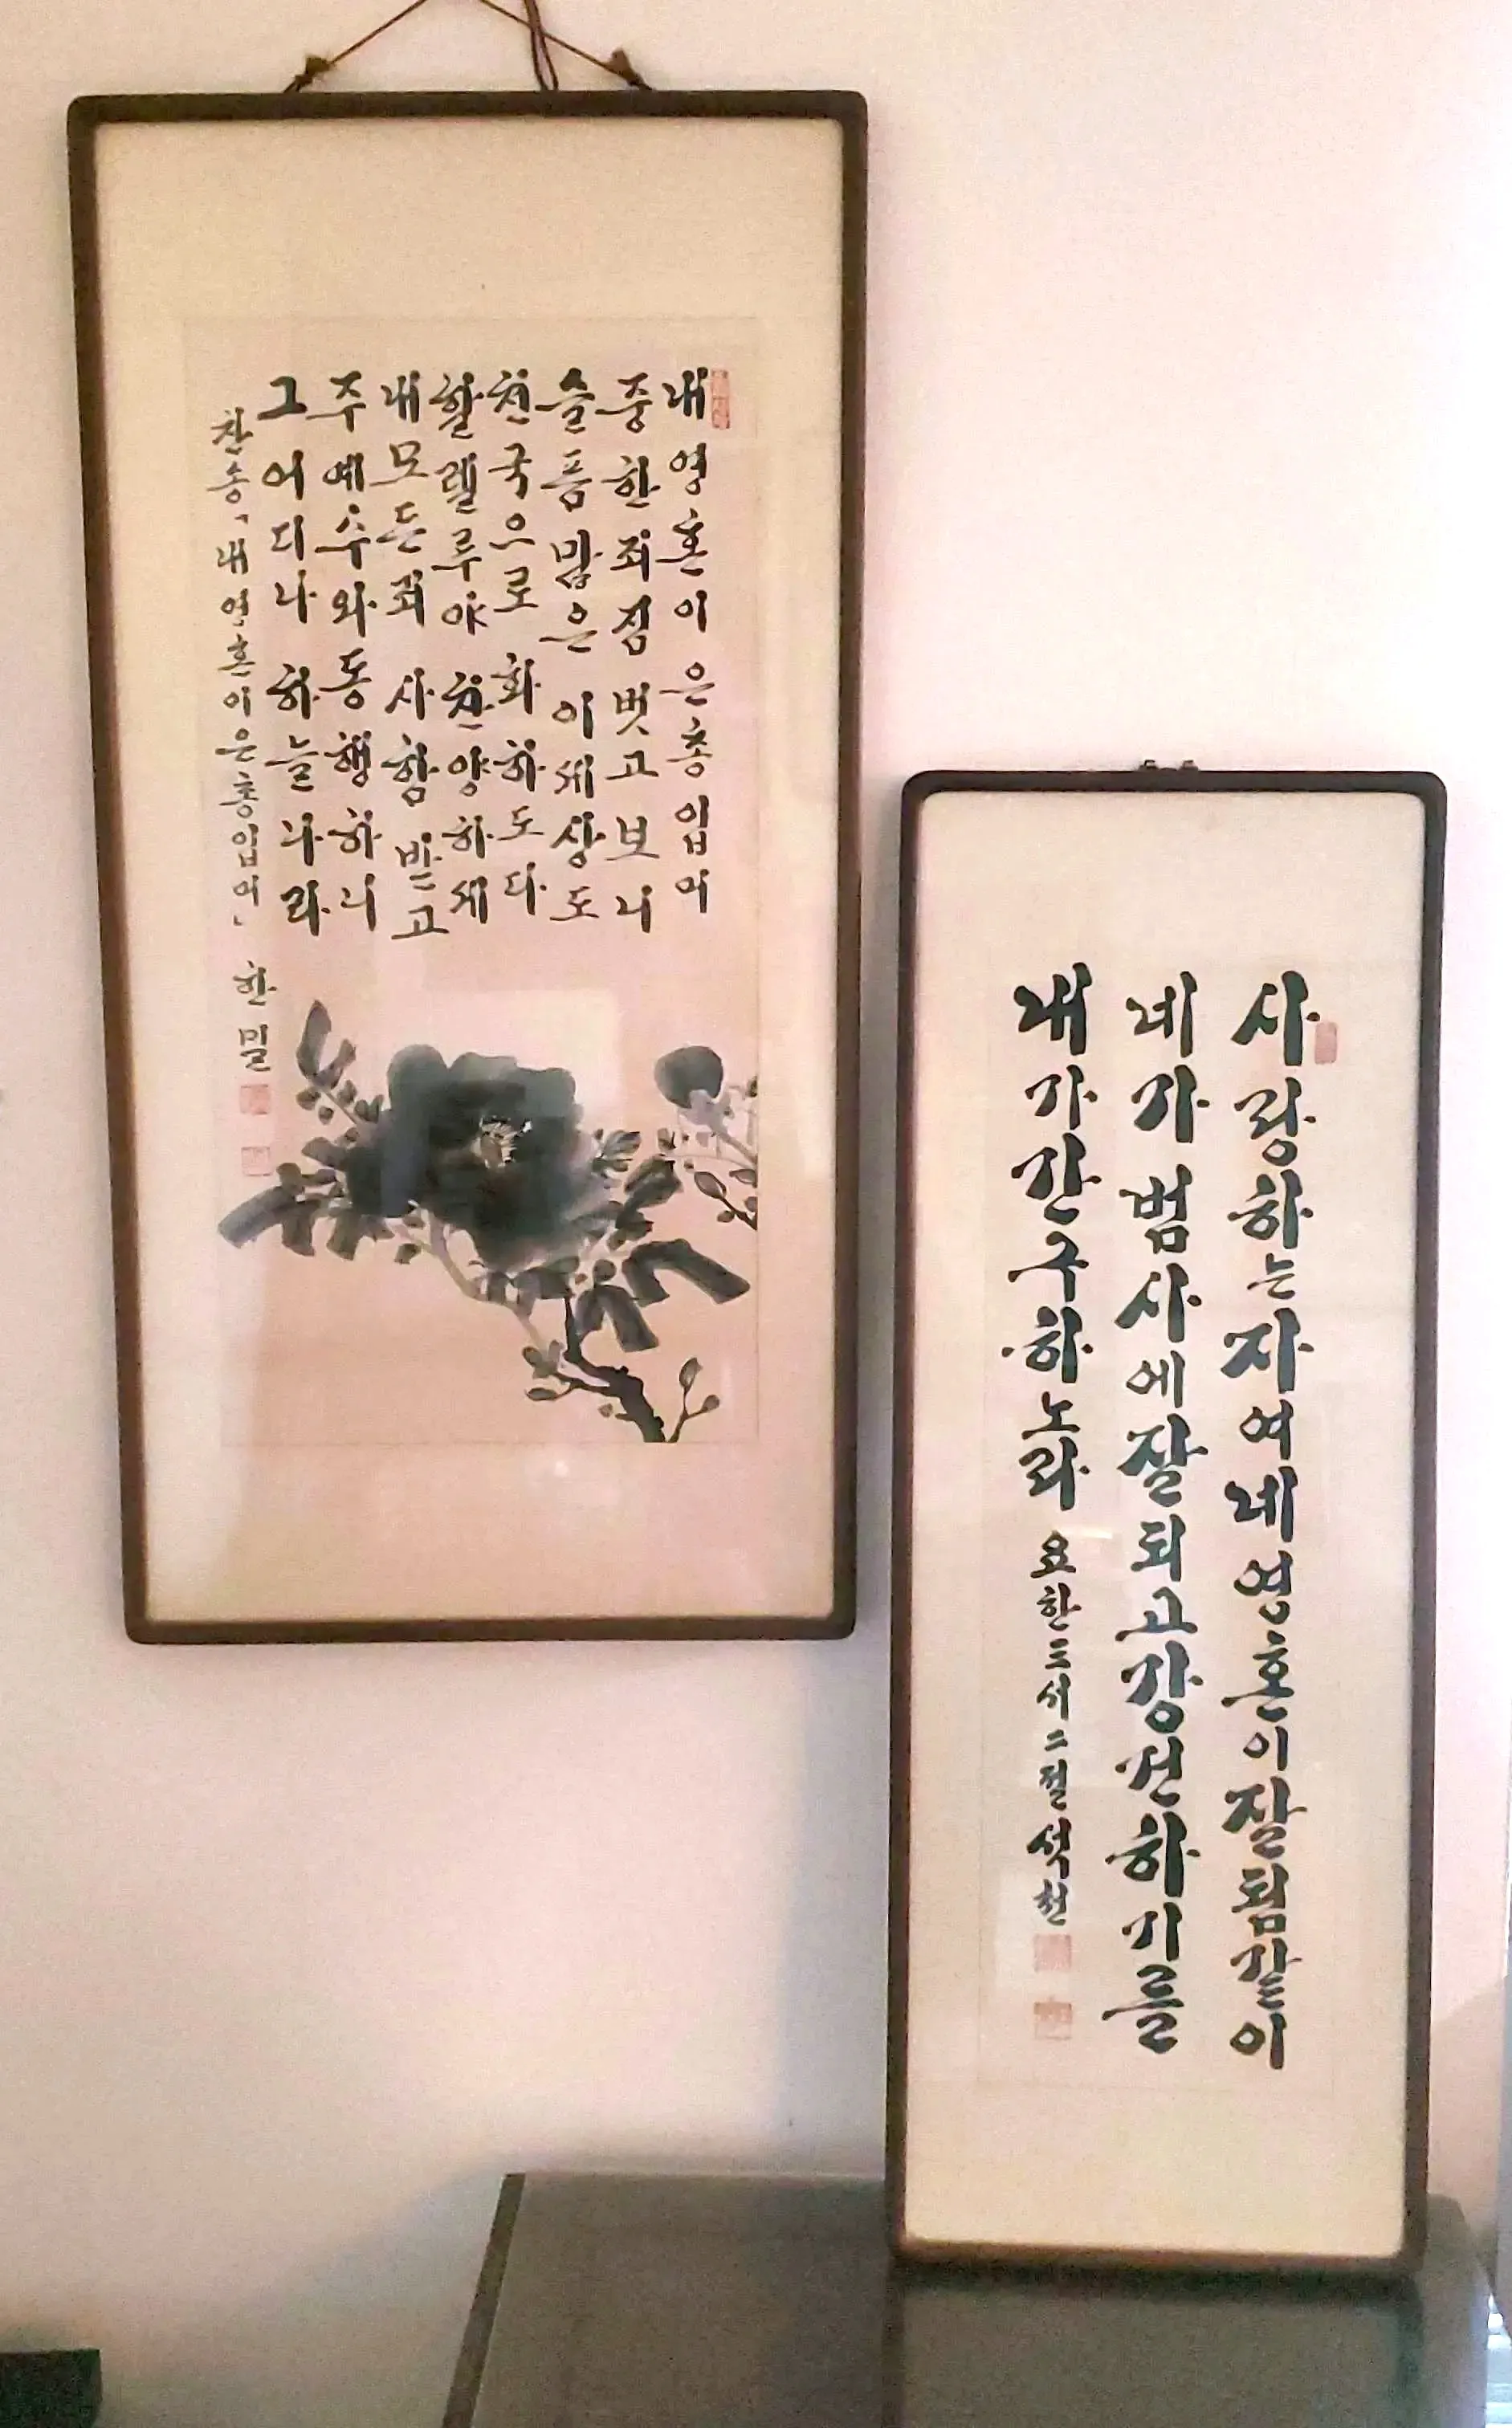 내 영혼이 은총 입어
중한 죄짐 벗고 보니
슬픔 많은 이 세상도
천국으로 화하도다
할렐루야 찬양하세
내 모든 죄 사함 받고
주 예수와 동행하니
그 어디나 하늘나라
찬송 「내 영혼이 은총 입어」 한밀
사랑하는 자여 네 영혼이 잘됨 같이
네가 범사에 잘되고 강건하기를
내가 간구하노라 요한三서 二절 석천